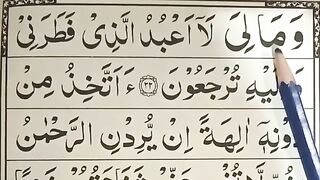 وَمَا لِىَ لَاۤ اَعْبُدُ الَّذِىْ فَطَرَنِىْ
وَاِلَيْهِ تُرْجَعُوْنَ ﴿۲۲﴾ ءَاَتَّخِذُ مِنْ
دُوْنِهٖۤ اٰلِهَةً اِنْ يُّرِدْنِ الرَّحْمٰنُ